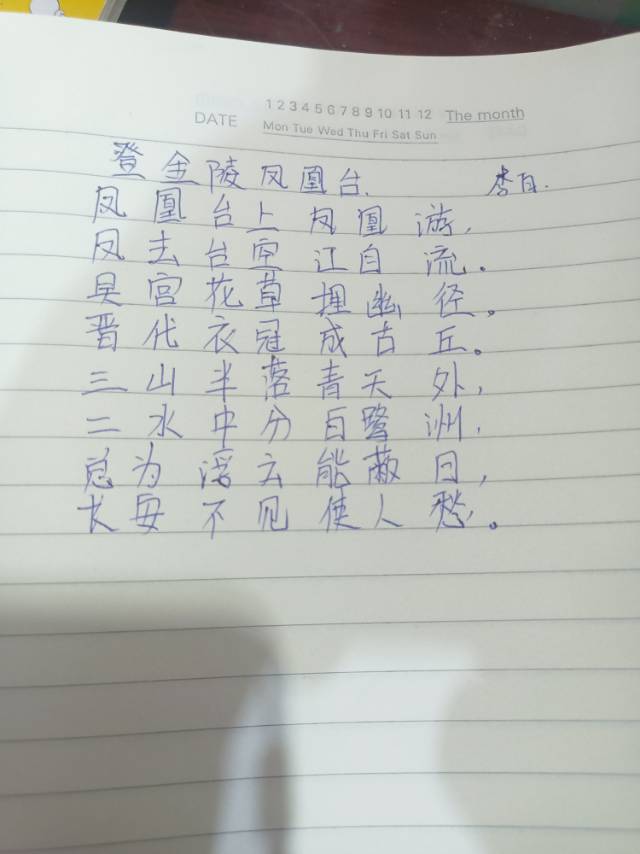 1 2 3 4 5 6 7 8 9 10 11 12 The month
DATE
Mon Tue Wed Thu Fri Sat Sun
登金陵凤凰台. 李白.
凤凰台上凤凰游,
凤去台空江自流.
吴宫花草埋幽径。
晋代衣冠成古丘。
三山半落青天外,
二水中分白鹭洲,
总为浮云能蔽日,
长安不见使人愁。